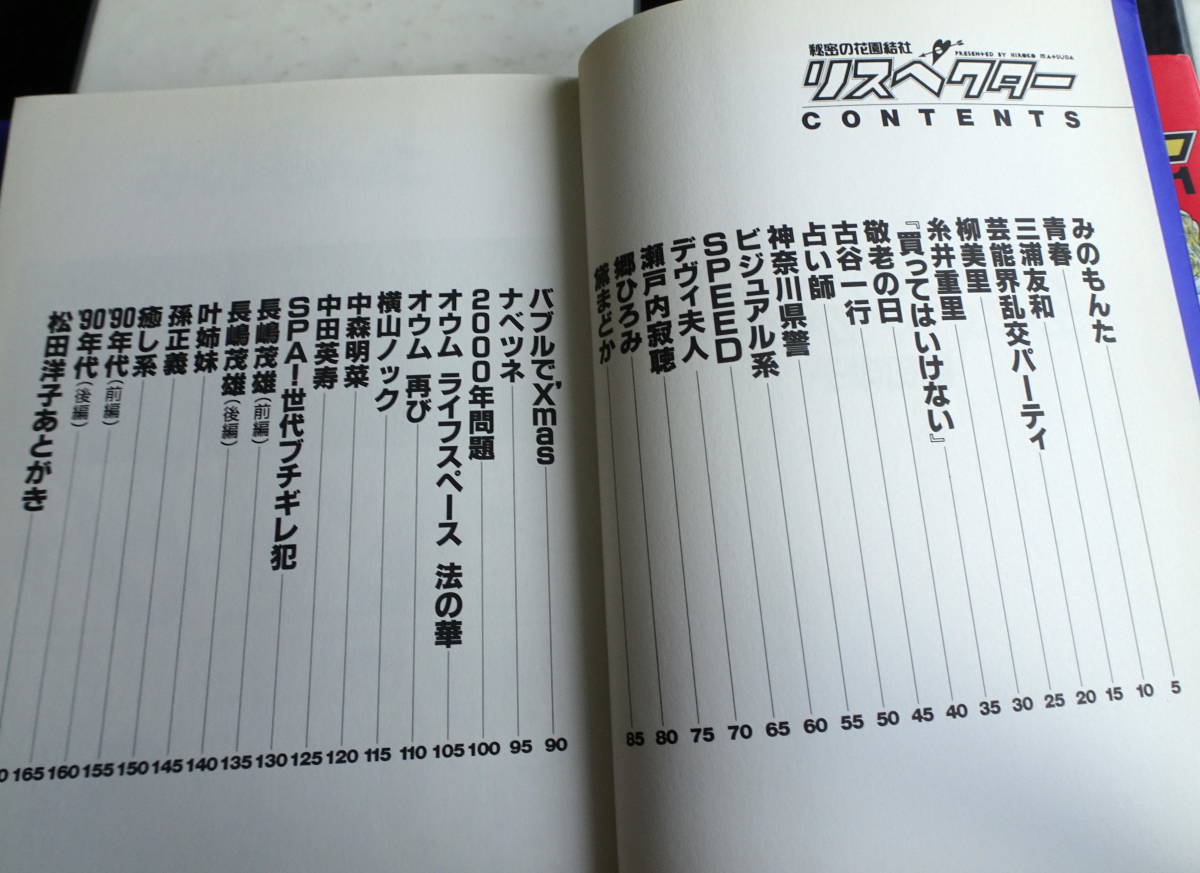 秘密の花園結社
PRESENTED BY HIROKO MATSUDA
リスペクター
CONTENTS
みのもんた 5
青春 10
三浦友和 15
芸能界乱交パーティ 20
柳美里 25
糸井重里 30
『買ってはいけない』 35
敬老の日 40
古谷一行 45
占い師 50
神奈川県警 55
ビジュアル系 60
SPEED 65
デヴィ夫人 70
瀬戸内寂聴 75
郷ひろみ 80
黛まどか 85
バブルで'Xmas 90
ナベツネ 95
2000年問題 100
オウム ライフスペース 法の華 105
オウム 再び 110
横山ノック 115
中森明菜 120
中田英寿 125
SPA!世代ブチギレ犯 130
長嶋茂雄(前編) 135
長嶋茂雄(後編) 140
叶姉妹 145
孫正義 150
癒し系 155
'90年代(前編) 160
'90年代(後編) 165
松田洋子あとがき 0
1